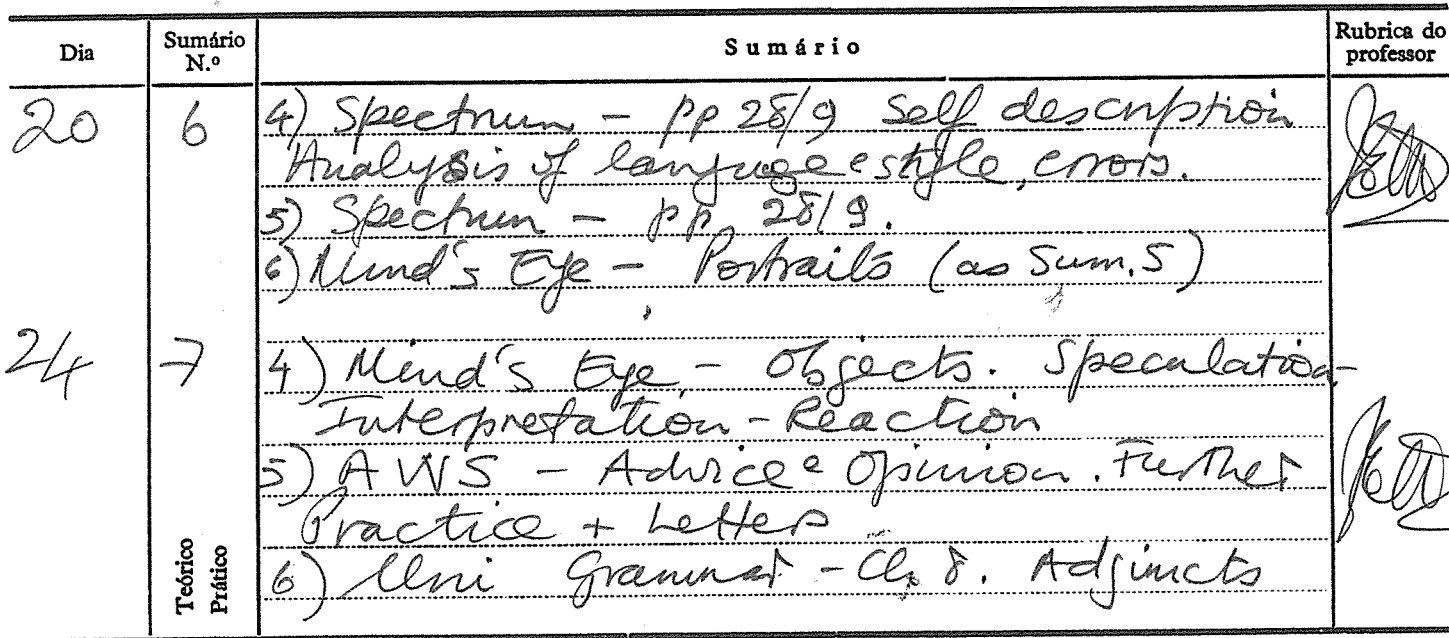 Dia Sumário N.º Sumário Rubrica do professor
20 6 4) Spectrum - pp 28/9 Self description
Analysis of language e style, errors.
5) Spectrum - pp 28/9.
6) Mind's Eye - Portraits (as Sum. 5)
24 7 4) Mind's Eye - Objects. Speculation-
Interpretation - Reaction
5) AWS - Advice e Opinion. Further
Practice + Letters
6) Uni Grammar - Ch. 8. Adjuncts
Teórico
Prático